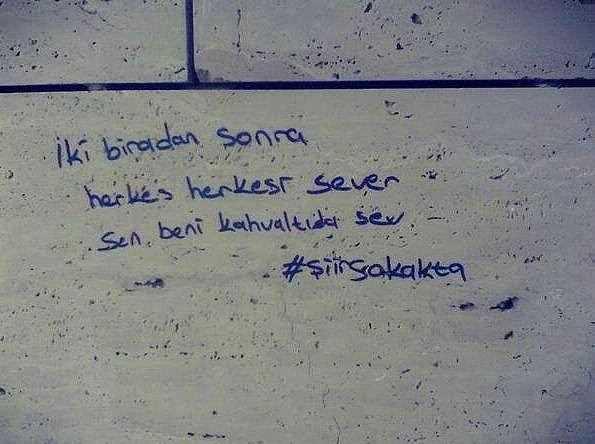 İki biradan sonra
herkes herkesi sever
Sen beni kahvaltıda sev
#şiirsokakta